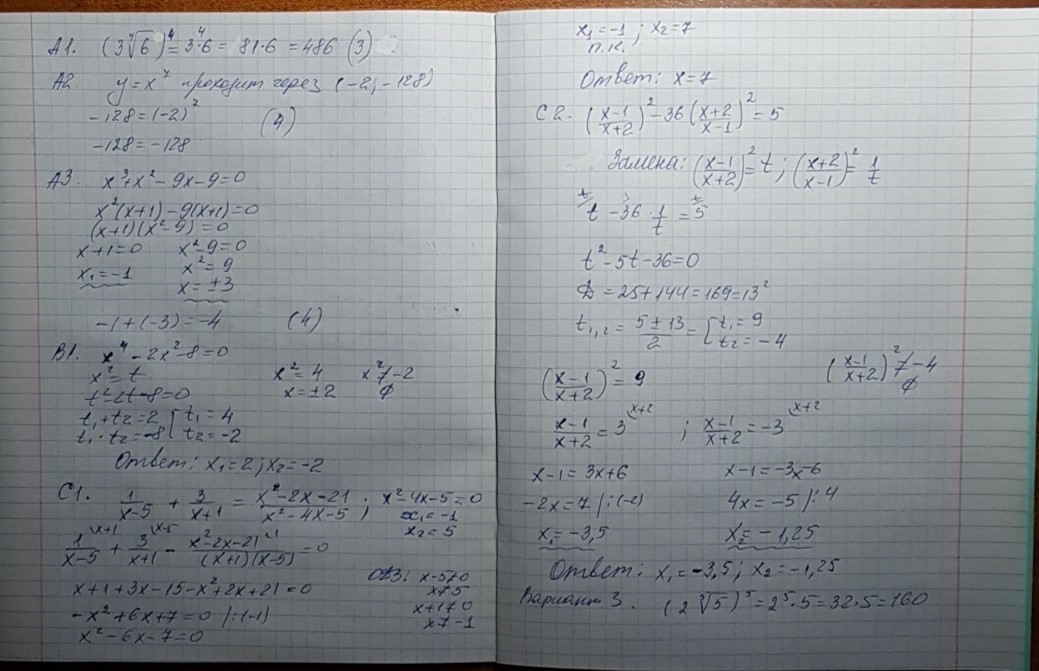 А1. (3∜6)⁴ = 3⁴·6 = 81·6 = 486 (3)
А2. y = x⁷ проходит через (-2; -128)
-128 = (-2)⁷ (4)
-128 = -128
А3. x³+x²-9x-9=0
x²(x+1)-9(x+1)=0
(x+1)(x²-9)=0
x+1=0 x²-9=0
x₁=-1 x²=9
x=±3
-1+(-3)=-4 (4)
В1. x⁴-2x²-8=0
x²=t x²=4 x²≠-2
t²-2t-8=0 x=±2 ∅
t₁+t₂=2 [ t₁=4
t₁·t₂=-8 [ t₂=-2
Ответ: x₁=2; x₂=-2
С1. 1/(x-5) + 3/(x+1) = (x²-2x-21)/(x²-4x-5); x²-4x-5=0
x₁=-1
x₂=5
1/(x-5) \x+1 + 3/(x+1) \x-5 - (x²-2x-21)/((x+1)(x-5)) \1 =0
x+1+3x-15-x²+2x+21=0
-x²+6x+7=0 |:(-1)
x²-6x-7=0
ОДЗ: x-5≠0
x≠5
x+1≠0
x≠-1
x₁=-1; x₂=7
п.к.
Ответ: x=7
С2. ((x-1)/(x+2))²-36((x+2)/(x-1))²=5
Замена: ((x-1)/(x+2))²=t; ((x+2)/(x-1))²=1/t
t-36·1/t=5
t²-5t-36=0
D=25+144=169=13²
t₁,₂=(5±13)/2=[ t₁=9
t₂=-4
((x-1)/(x+2))²=9 ((x-1)/(x+2))²≠-4
∅
(x-1)/(x+2)=3 \x+2 ; (x-1)/(x+2)=-3 \x+2
x-1=3x+6 x-1=-3x-6
-2x=7 |:(-2) 4x=-5 |:4
x₁=-3,5 x₂=-1,25
Ответ: x₁=-3,5; x₂=-1,25
Вариант 3. (2⁵√5)⁵=2⁵·5=32·5=160